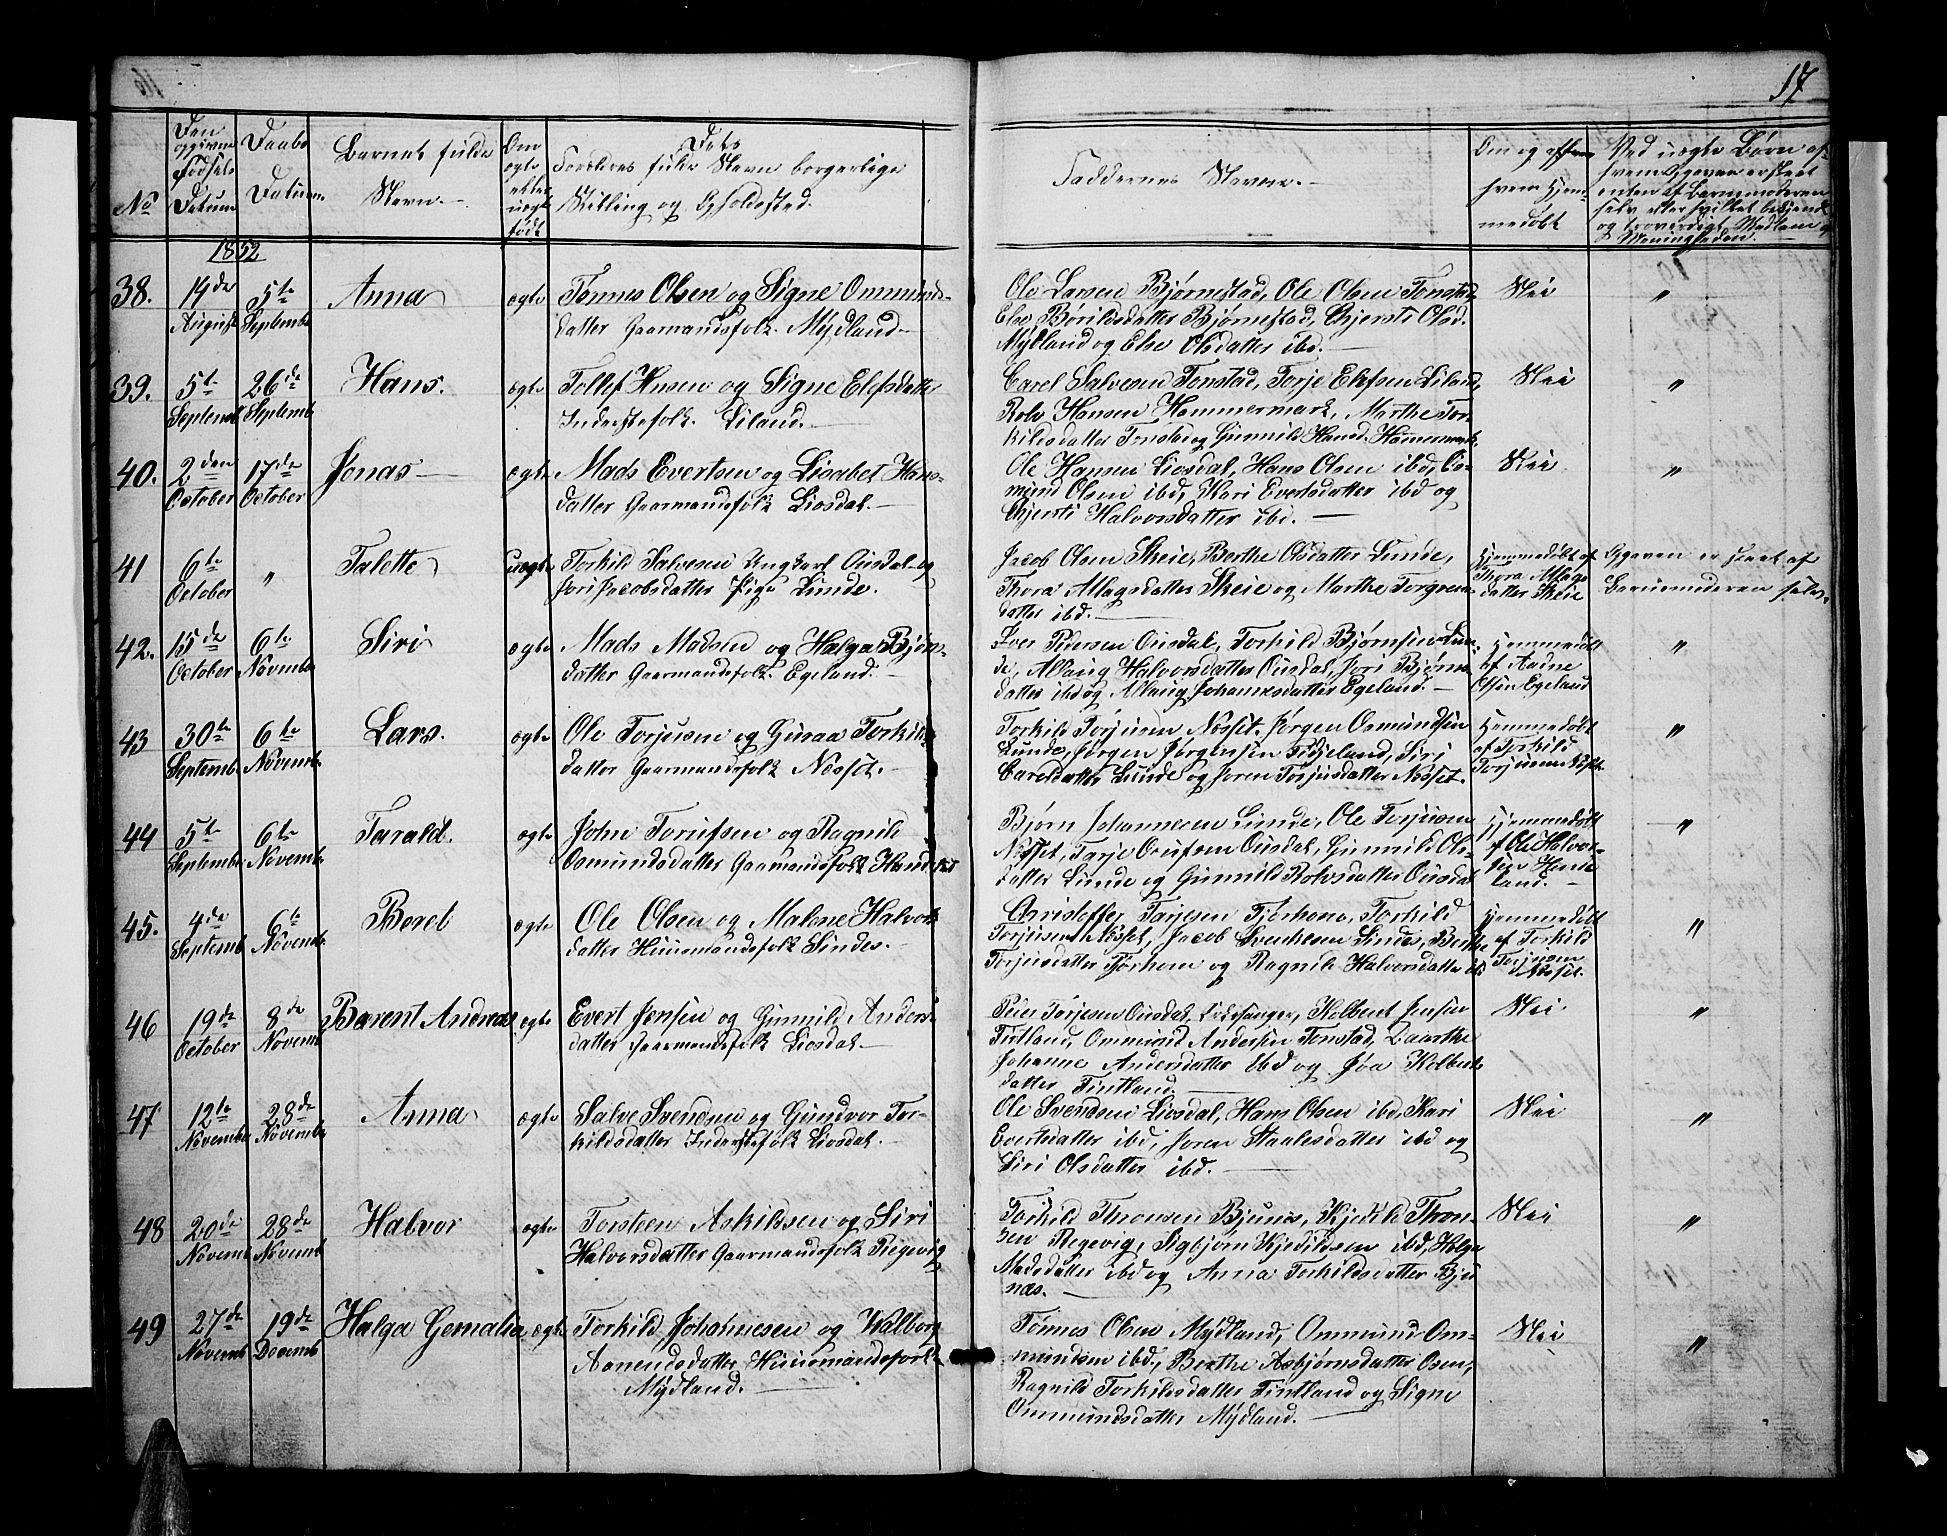 17
No
Den opgivne Fødsels Datum
Daabs Datum
Barnets fulde Navn.
Om ægte eller uægte født
Dets Forældres fulde Navn borgerlige Stilling og Opholdssted.
Faddernes Navne.
Om og af hvem Hjemmedøbt
Ved uægte Børn af hvem Opgaven er skeet enten af Barnemoderen selv eller hvilket bekjendt og troværdigt Medlem af Menigheden.
1852
38. 14de August 5te Septembr Anna ægte Tønnes Olsen og Signe Ommunds-
datter Gaarmandsfolk. Mydland
Ole Larsen Bjørnestad, Ole Olsen Tonstad,
Else Borildsdatter Bjørnestad, Chjersti Olsd.
Mydland og Else Olsdatter ibd. Nei "
39. 5te Septembr 26de Septembr Hans. ægte Tollef Hansen og Signe Elefsdatter
Inderstefolk. Liland.
Carel Salvesen Tonstad, Torje Elefsen Liland,
Rolv Hansen Hammermark, Marthe Tor-
kildsdatter Tonstad og Gunnild Hansd. Hamermark. Nei "
40. 2den October 17de October Jonas ægte Mads Evertsen og Lisabet Hans-
datter Gaarmandsfolk Liosdal.
Ole Hansen Liosdal, Hans Olsen ibd, Os-
mund Olsen ibd, Kari Evertsdatter ibd og
Chjersti Halvorsdatter ibd. Nei "
41 6te October " Talette uægte Torkild Salvesen Ungkarl Ousdal og
Jori Jacobsdatter Pige Lunde.
Jacob Olsen Skeie, Berthe Olsdatter Lunde,
Thora Atlagsdatter Skeie og Marthe Torgrims-
datter ibd.
Hjemmedøbt af Thora Atlags datter Skeie
Opgaven er skeet af
Barnemoderen selv.
42. 15de October 6te Novembr Siri ægte Mads Madsen og Halga Bjørns-
datter Gaarmandsfolk. Egeland.
Iver Pedersen Ousdal, Torkild Bjørnsen Lun-
de, Atlaug Halvorsdatter Ousdal, Jori Bjørns
datter ibd og Atlaug Johannesdatter Egeland.
Hjemmedøbt af Aadne Olsen Egeland "
43 30te Septembr 6te Novembr Lars. ægte Ole Torjusen og Guraa Torkilds
datter Gaarmandsfolk Nesset.
Torkild Torjusen Nesset. Jørgen Osmundsen
Lunde, Jørgen Jørgensen Fidjeland, Siri
Carelsdatter Lunde og Joren Torjusdatter Nesset.
Hjemmedøbt af Torkild Torjusen Nesset. "
44 5te Septembr 6te Novembr Tarald. ægte John Torufsen og Ragnild
Osmundsdatter Gaarmandsfolk
Bjørn Johannesen Lunde, Ole Torjusen
Nesset, Tarje Orufsen Ousdal, Gunnild Ols-
datter Lunde og Gunnild Rolvsdatter Ousdal
Hjemmedøbt af Ole Halvor- sen land. "
45. 4de Septembr 6te Novembr Beret ægte Ole Olsen og Malene Halvors
datter Huusmandsfolk Sindes.
Christoffer Tarjesen Tjørhom, Torkild
Torjusen Nesset, Jacob Svenkesen Sindes, Berthe
Torjusdatter Tjørhom og Ragnild Halvorsdatter ibd
Hjemmedøbt af Torkild Torjusen Nesset. "
46 19de October 8de Novemb Barent Andreas ægte Evert Jensen og Gunnild Anders-
datter Gaarmandsfolk Liosdal
Peder Torjesen Ousdal, Kirkesanger, Kolbent Jensen
Fintland, Ommund Andersen Tonstad, Baarthe
Johanne Andersdatter ibd og Joa Kolbents
datter Fintland. Nei. "
47 12te Novembr 28de Novembr Anna ægte Salve Svendsen og Gundvor Tor-
kildsdatter Inderstefolk Liosdal.
Ole Svendsen Liosdal, Hans Olsen ibd, Kari
Evertsdatter ibd, Joren Staalesdatter ibd og
Siri Olsdatter ibd. Nei "
48 20de Novemb 28de Novemb Halvor ægte Torsteen Askildsen og Siri
Halvorsdatter Gaarmandsfolk Regevig
Torkild Thronsen Bjunes, Kjedild Thron-
sen Regevig, Sigbjørn Kjedildsen ibd, Helga
Madsdatter ibd og Anna Torkildsdatter Bju
næs. Nei "
49 27de Novemb 19de Decemb Halga Gemalia ægte Torkild Johannesen og Walborg
Aanendsdatter Huusmandsfolk
Mydland.
Tønnes Olsen Mydland, Ommund Om-
mundsen ibd., Berthe Asbjørnsdatter Osen,
Ragnild Torkildsdatter Fintland og Signe
Ommundsdatter Mydland. Nei "